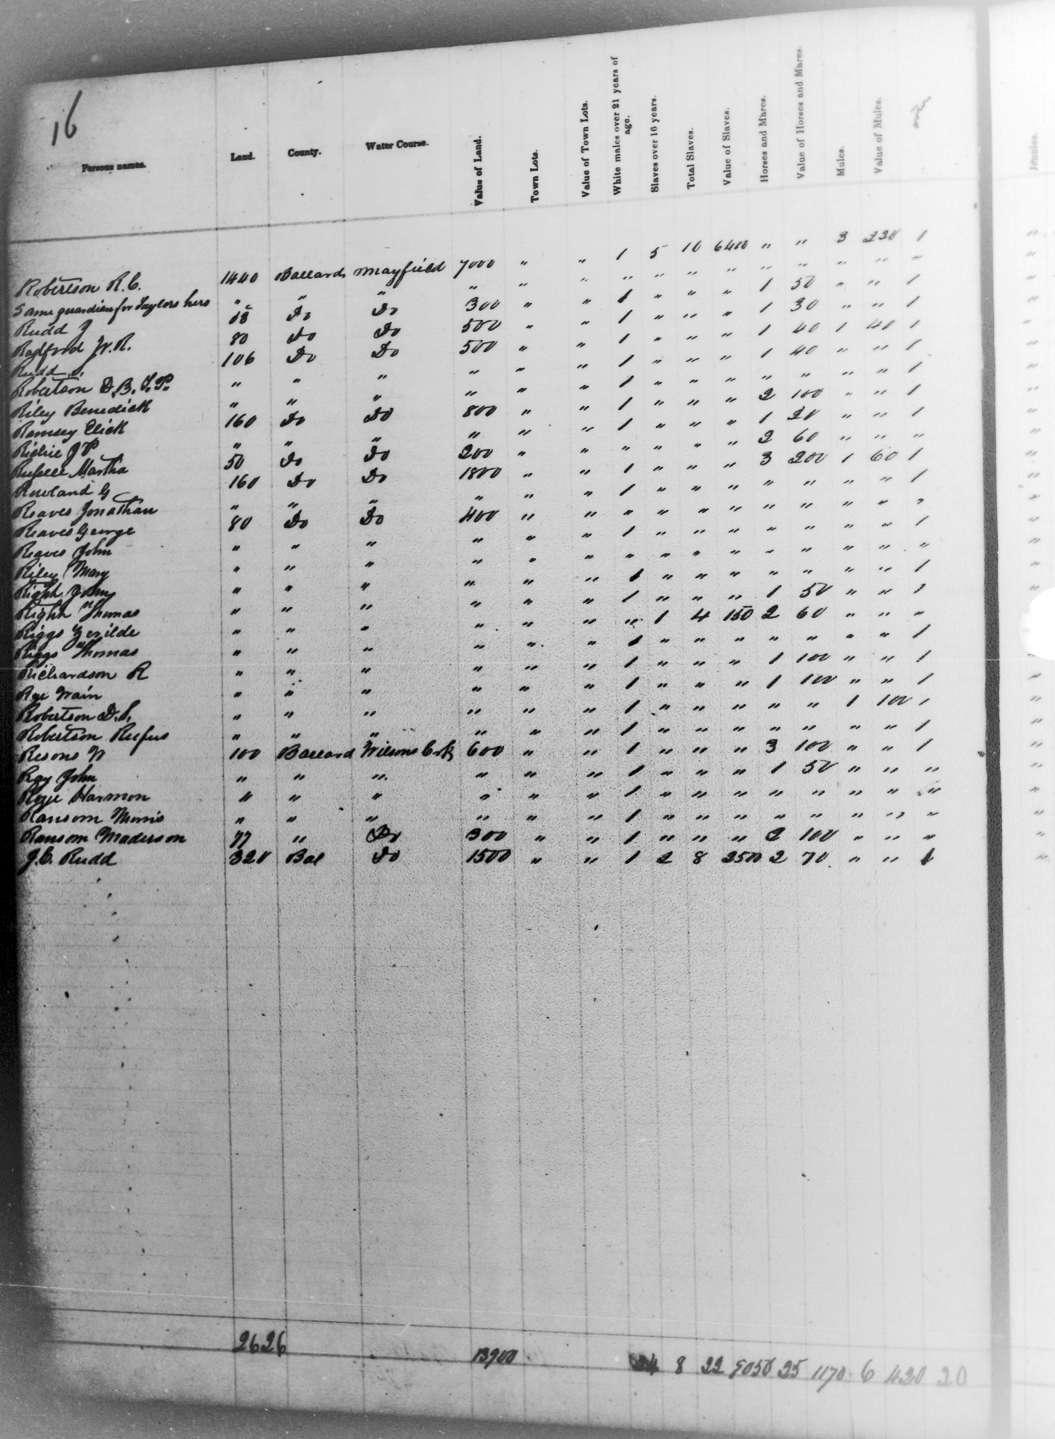 16
Persons names. Land. County. Water Course. Value of Land. Town Lots. Value of Town Lots. White males over 21 years of age. Slaves over 16 years. Total Slaves. Value of Slaves. Horses and Mares. Value of Horses and Mares Mules. Value of Mules.
Robertson R.C. 1440 Ballard Mayfield 7000 " " 1 5 10 6400 " " 3 230 1
Same guardian for Taylors hers " " " " " " " " " " " " " "
Rudd J 18 Do Do 300 " " 1 " " " 1 50 " " 1
Radford W.R. 80 Do Do 500 " " 1 " " " 1 30 " " 1
Rudd S. 106 Do Do 500 " " 1 " " " 1 40 1 40 1
Robertson D.B. " " " " " " 1 " " " 1 40 " " 1
Riley Benedick " " " " " " 1 " " " " " " " 1
Ramsey Elick 160 Do Do 800 " " 1 " " " 2 100 " " 1
Richie J P " " " " " " 1 " " " 1 20 " " 1
Martha 50 Do Do 200 " " " " " " 2 60 " " "
Rowland G 160 Do Do 1800 " " 1 " " " 3 200 1 60 1
Reaves Jonathan " " " " " " 1 " " " " " " " 1
Reaves George 80 Do Do 400 " " " " " " " " " " "
Reaves John " " " " " " 1 " " " " " " " 1
Riley Mary " " " " " " " " " " " " " " "
Right John " " " " " " 1 " " " " " " " 1
Right Thomas " " " " " " 1 " " " 1 50 " " 1
Riggs " " " " " " " 1 4 150 2 60 " " "
Riggs Thomas " " " " " " 1 " " " " " " " 1
Richardson R " " " " " " 1 " " " 1 100 " " 1
Roe " " " " " " 1 " " " 1 100 " " 1
Robertson D.S. " " " " " " 1 " " " " " 1 100 1
Robertson Rufus " " " " " " 1 " " " " " " " 1
Resons 100 Ballard Wilsons Crk 600 " " 1 " " " 3 100 " " 1
Ray John " " " " " " 1 " " " 1 50 " " "
Harmon " " " " " " 1 " " " " " " " "
Ransom Morris " " " " " " 1 " " " " " " " "
Ransom Maderson 77 " Do 300 " " 1 " " " 2 100 " " "
J.C. Rudd 320 Bal Do 1500 " " 1 2 8 2500 2 70 " " 1
2626 13900 24 8 22 9050 25 1170 6 420 20